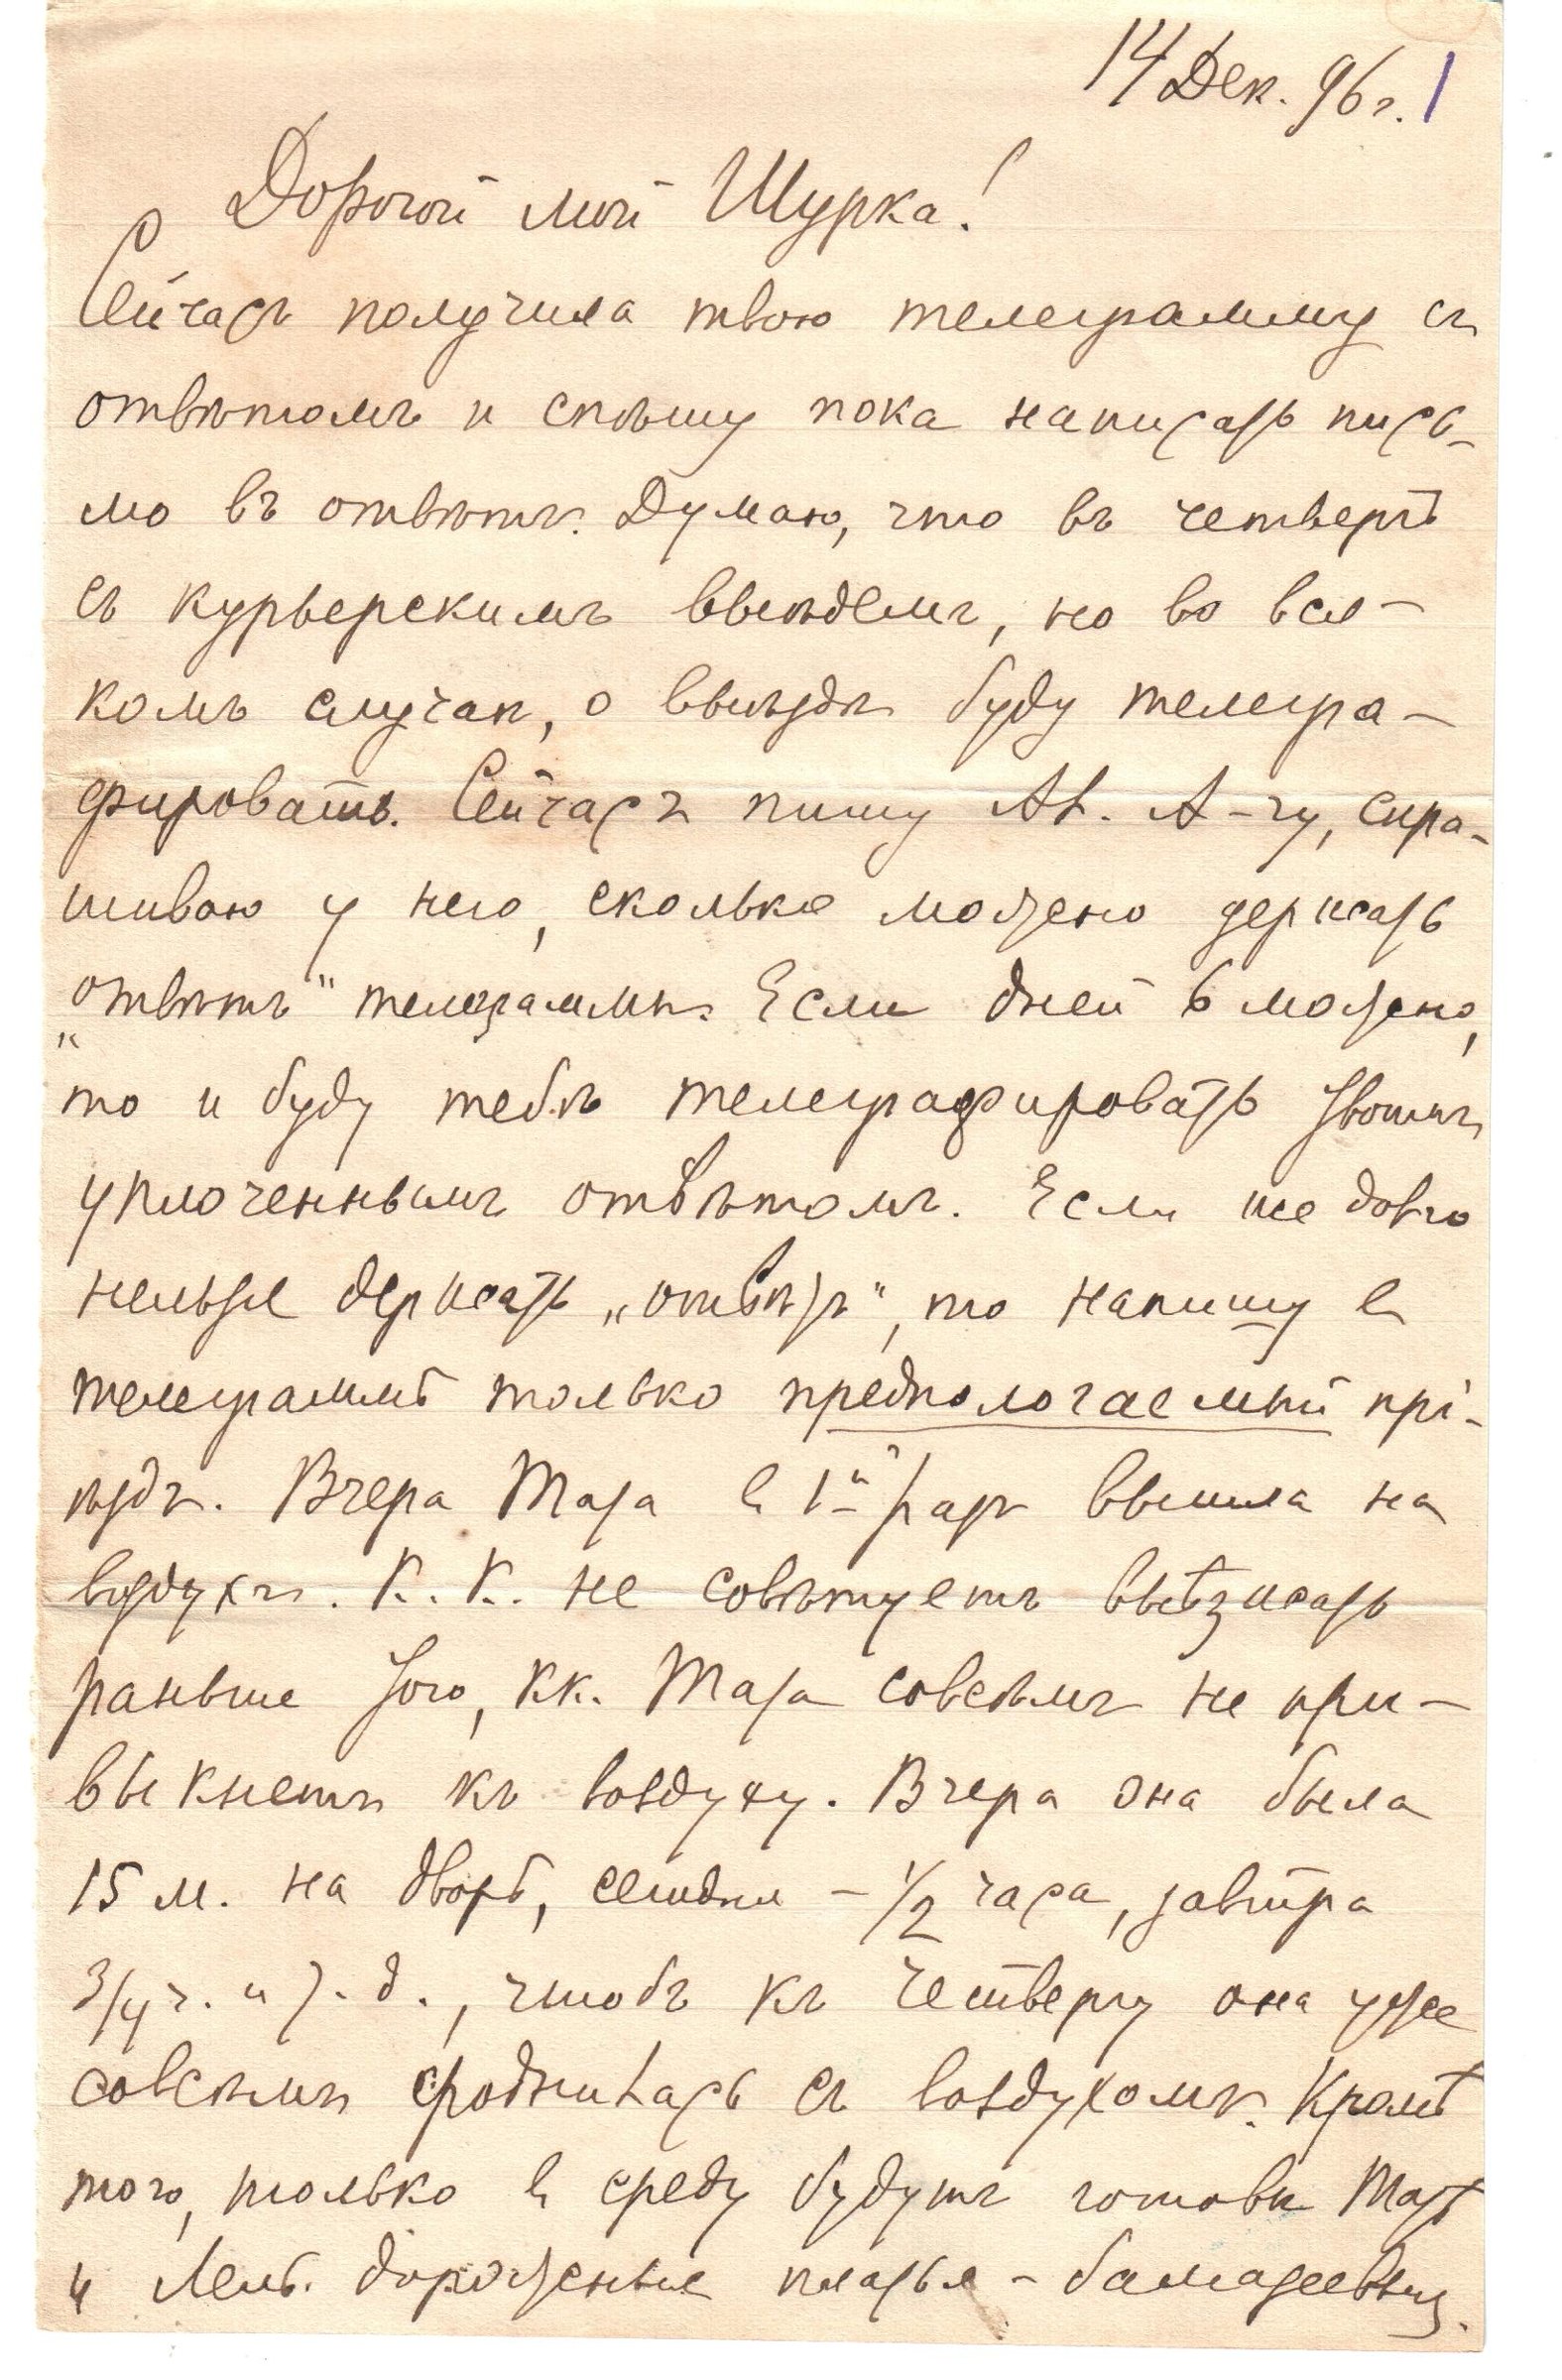 14 Дек. 96 г. 1
Дорогой мой Шурка!
Сейчасъ получила твою телеграмму съ
отвѣтомъ и спѣшу пока написать пись-
мо въ отвѣтъ. Думаю, что въ четвергъ
съ курьерскимъ выѣдемъ, но во вся-
комъ случаѣ, о выѣздѣ буду телегра-
фировать. Сейчасъ пишу Ал. А-чу, спра-
шиваю у него, сколько можно держать
„отвѣтъ" телеграммы. Если дней 6 можно,
то и буду тебѣ телеграфировать
уплоченнымъ отвѣтомъ. Если же долго
нельзя держать „отвѣтъ", то напишу въ
телеграммѣ только предпологаемый прі-
ѣздъ. Вчера Тата въ 1й разъ вышла на
воздухъ. К. К. не совѣтуетъ выѣзжать
раньше того, кк. Тата совсѣмъ не при-
выкнетъ къ воздуху. Вчера она была
15 м. на дворѣ, сегодня - 1/2 часа, завтра
3/4 ч. и т. д., чтобъ къ четвергу она уже
совсѣмъ сроднилась съ воздухомъ. Кромѣ
того, только въ среду будутъ готовы Татѣ
и Лелѣ дорожныя платья - бамазеевыя.